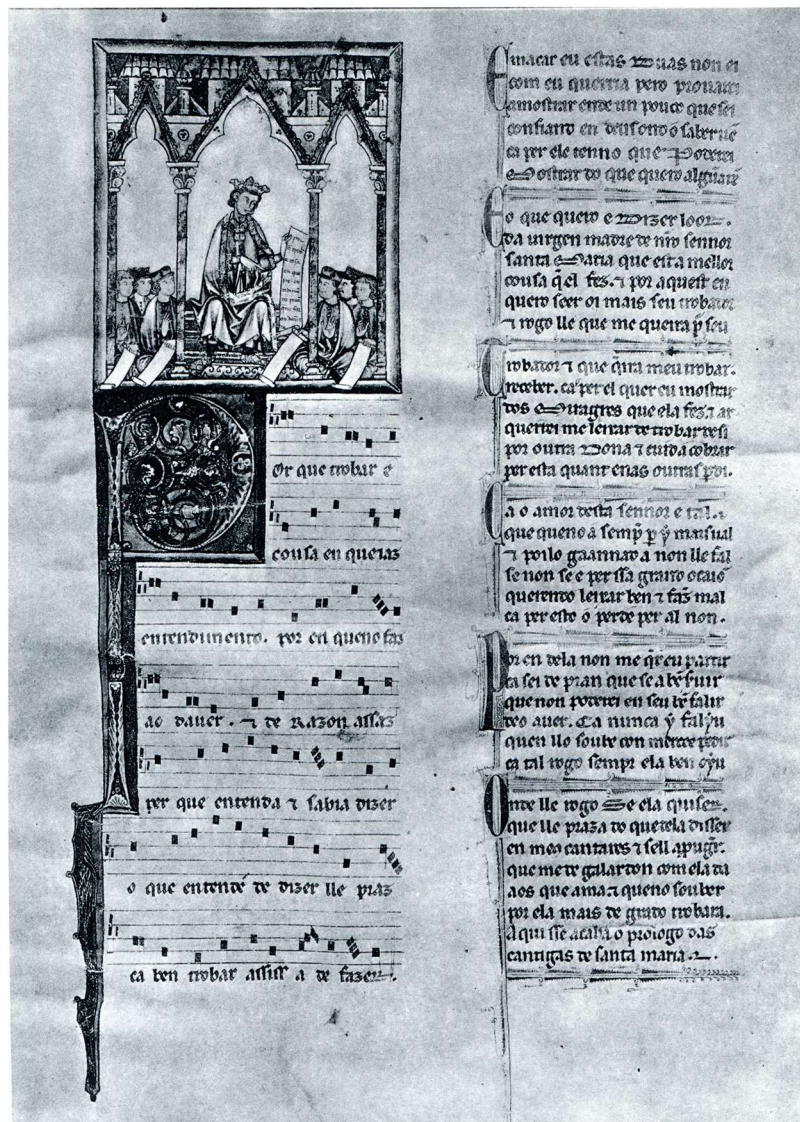 Or que trobar e
cousa en que iaz
entendimento. por en queno faz
ao dauer. ⁊ de razon assaz
per que entenda ⁊ sabia dizer
o que entende de dizer lle praz
ca ben trobar assi ss a de fazer.
E macar eu estas duas non ei
com eu querria pero prouarei
amostrar ende un pouco que sei
confiand en deus ond o saber uē
ca per ele tenno que poderei
mostrar do que quero
E o que quero e dizer loor.
da uirgen madre de nr̃o sennor
santa maria que est a mellor
cousa q̃ el fez. ⁊ por aquest eu
quero seer oi mais seu trobador
⁊ rogo lle que me queira p̃ seu
Trobador ⁊ que q̃ira meu trobar.
receber. ca per el quer eu mostrar
dos miragres que ela fez. ⁊ ar
querrei me leixar de trobar desi
por outra dona ⁊ cuid a cobrar
per esta quant enas outras p̃di.
Ca o amor desta sennor e tal.
que queno a semp̃ p̃ y mais ual
⁊ poilo gaannad a non lle fal
se non se e per ssa grand ocaiō
querendo leixar ben ⁊ faz mal
ca per esto o perde per al non.
Por en dela non me q̃r eu partir
ca sei de pran que se a bē seruir
que non poderei en seu bē falir
deo auer. Ca nunca y falyu
quen llo soube con merçee pedir
ca tal rogo sempr ela ben oyu
Onde lle rogo se ela quiser.
que lle praza do que dela disser
en meus cantares ⁊ sell
que me de galardon com ela da
aos que ama ⁊ queno souber
por ela mais de grado trobara.
Aqui sse acaba o prologo das
cantigas de santa maria.